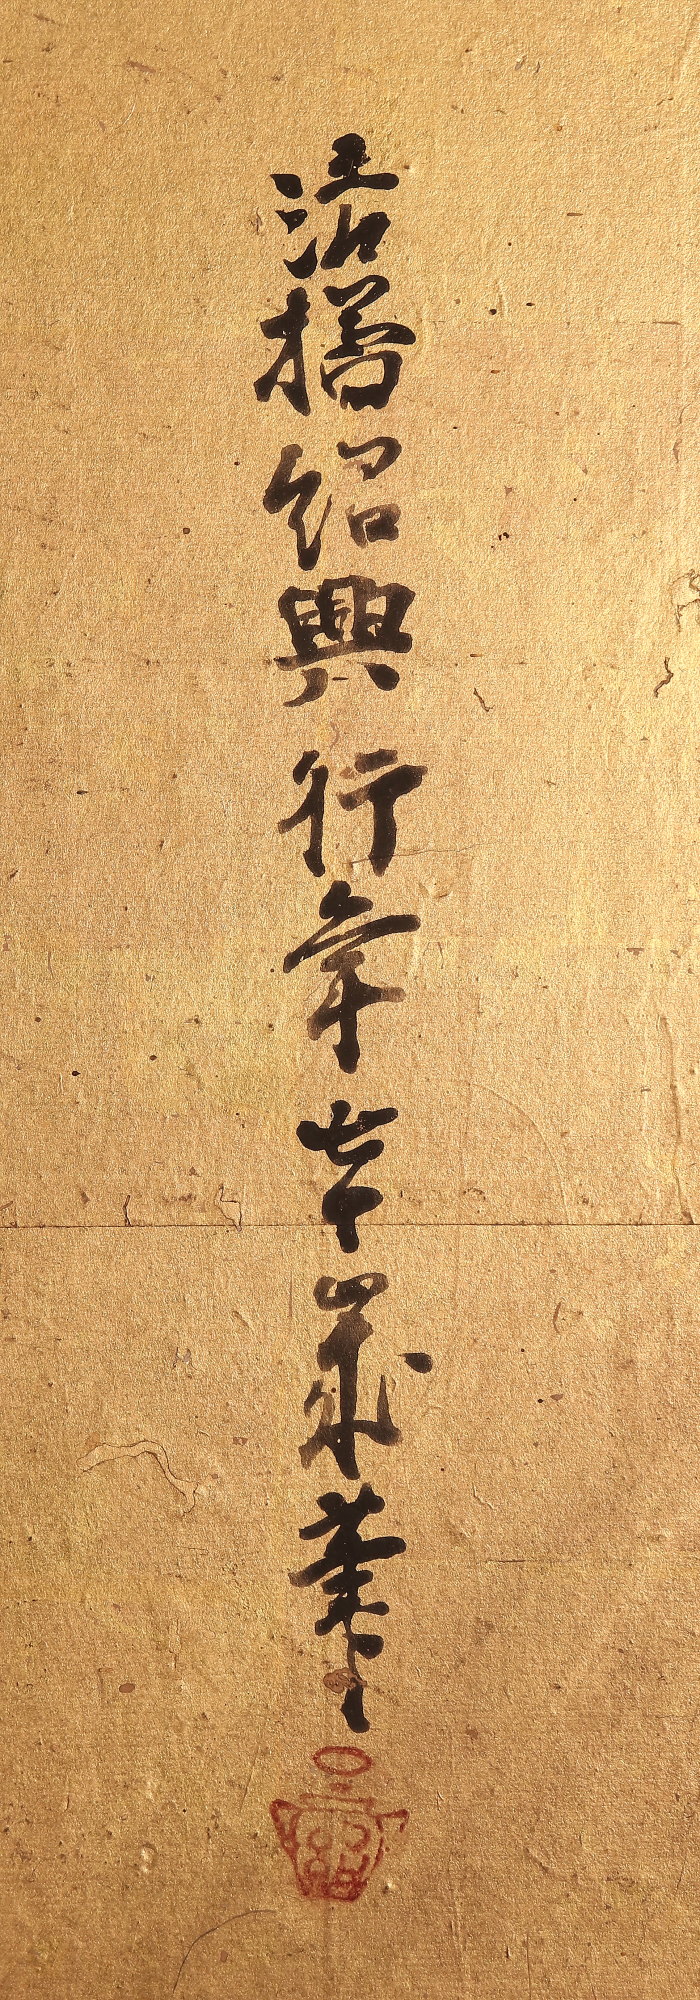 法橋紹興行年七十歳筆